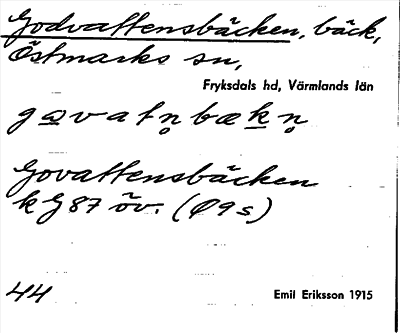 Godvattensbäcken, bäck,
Östmarks sn,
Fryksdals hd, Värmlands län
Govattensbäcken
k G 87 öv. (Ø9s)
44
Emil Eriksson 1915